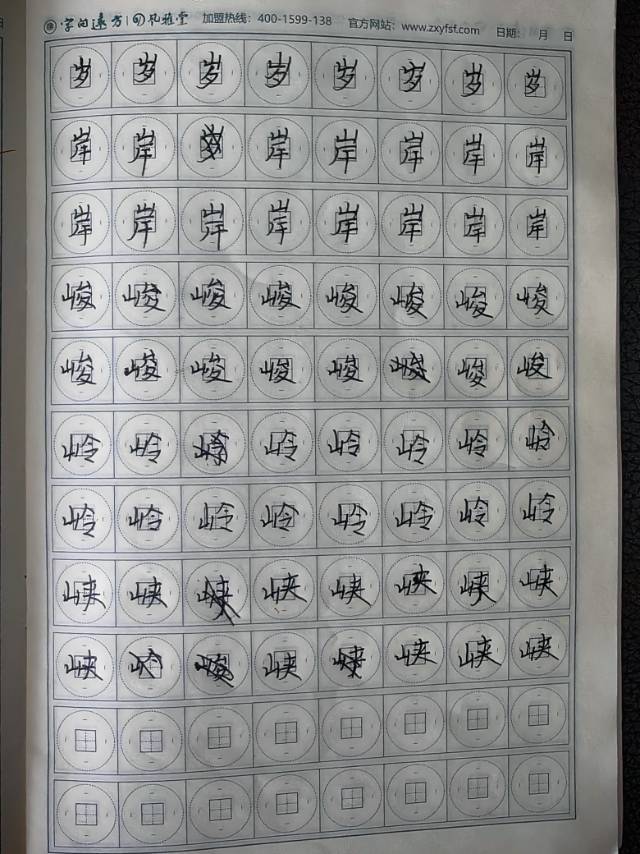 字的远方 凤雅堂 加盟热线：400-1599-138 官方网站：www.zxyfsf.com 日期： 月 日
岁 岁 岁 岁 岁 岁 岁 岁
岸 岸 岸 岸 岸 岸 岸
岸 岸 岸 岸 岸 岸 岸 岸
峻 峻 峻 峻 峻 峻 峻 峻
峻 峻 峻 峻 峻 峻 峻 峻
岭 岭 岭 岭 岭 岭 岭 岭
岭 岭 岭 岭 岭 岭 岭 岭
峡 峡 峡 峡 峡 峡 峡 峡
峡 岭 峻 峡 峡 峡 峡 峡